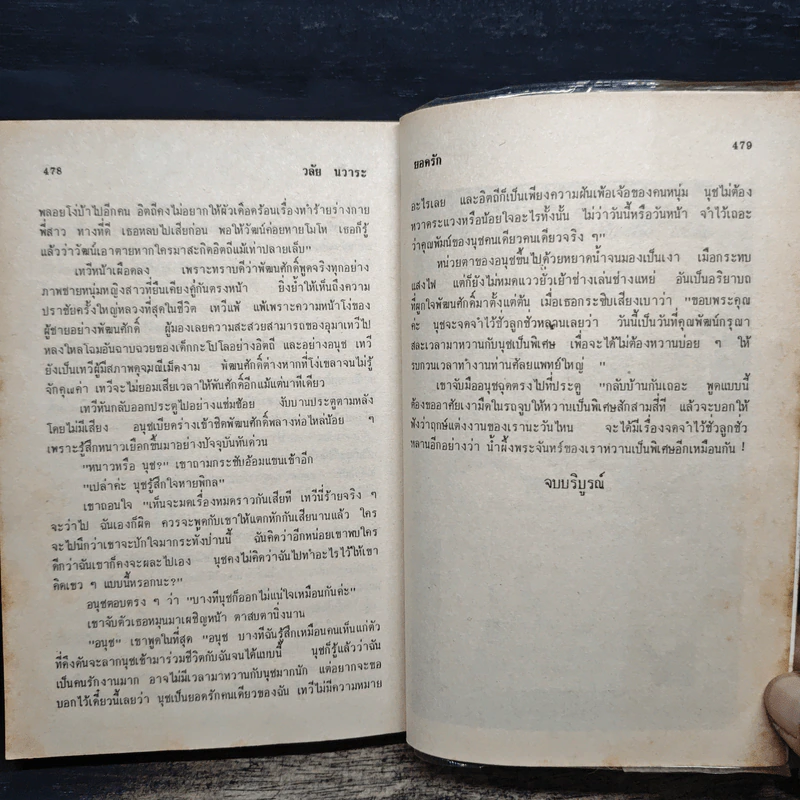 478
วลัย นวาระ
พลอยโง่บ้าไปอีกคน อิตถีคงไม่อยากให้ผัวเดือดร้อนเรื่องทำร้ายร่างกาย
พี่สาว ทางที่ดี เธอหลบไปเสียก่อน พอให้วัฒน์ค่อยหายโมโห เธอก็รู้
แล้วว่าวัฒน์เอาตายหากใครมาสะกิดอิตถีแม้เท่าปลายเล็บ"
เทวีหน้าเผือดลง เพราะทราบดีว่าพัฒนศักดิ์พูดจริงทุกอย่าง
ภาพชายหนุ่มหญิงสาวที่ยืนเคียงคู่กันตรงหน้า ยิ่งย้ำให้เห็นถึงความ
ปราชัยครั้งใหญ่หลวงที่สุดในชีวิต เทวีแพ้ แพ้เพราะความหน้าโง่ของ
ผู้ชายอย่างพัฒนศักดิ์ ผู้มองเลยความสะสวยสามารถของอุมาเทวีไป
หลงใหลโฉมอันฉาบฉวยของเด็กกะโปโลอย่างอิตถี และอย่างอนุช เทวี
ยังเป็นเทวีผู้มีสภาพดุจมณีเม็ดงาม พัฒนศักดิ์ต่างหากที่โง่เขลาจนไม่รู้
จักคุณค่า เทวีจะไม่ยอมเสียเวลาให้พันศักดิ์อีกแม้แต่นาทีเดียว
เทวีหันกลับออกประตูไปอย่างแช่มช้อย งับบานประตูตามหลัง
โดยไม่มีเสียง อนุชเบียดร่างเข้าชิดพัฒนศักดิ์พลางห่อไหล่น้อย ๆ
เพราะรู้สึกหนาวเยือกขึ้นมาอย่างปัจจุบันทันด่วน
"หนาวหรือ นุช?" เขาถามกระชับอ้อมแขนเข้าอีก
"เปล่าค่ะ นุชรู้สึกใจหายพิกล"
เขาถอนใจ "เห็นจะมดเรื่องหมดราวกันเสียที เทวีนี่ร้ายจริง ๆ
จะว่าไป ฉันเองก็ผิด ควรจะพูดกับเขาให้แตกหักกันเสียนานแล้ว ใคร
จะไปนึกว่าเขาจะปักใจมากระทั่งป่านนี้ ฉันคิดว่าอีกหน่อยเขาพบใคร
ดีกว่าฉันเขาก็คงจะผละไปเอง นุชคงไม่คิดว่าฉันไปทำอะไรไว้ให้เขา
คิดเขว ๆ แบบนี้หรอกนะ?"
อนุชตอบตรง ๆ ว่า "บางทีนุชก็ออกไม่แน่ใจเหมือนกันค่ะ"
เขาจับตัวเธอหมุนมาเผชิญหน้า ตาสบตานิ่งนาน
"อนุช" เขาพูดในที่สุด "อนุช บางทีฉันรู้สึกเหมือนคนเห็นแก่ตัว
ที่ดึงดันจะลากนุชเข้ามาร่วมชีวิตกับฉันจนได้แบบนี้ นุชก็รู้แล้วว่าฉัน
เป็นคนรักงานมาก อาจไม่มีเวลามาหวานกับนุชมากนัก แต่อยากจะขอ
บอกไว้เดี๋ยวนี้เลยว่า นุชเป็นยอดรักคนเดียวของฉัน เทวีไม่มีความหมาย
ยอดรัก
479
อะไรเลย และอิตถีก็เป็นเพียงความฝันเพ้อเจ้อของคนหนุ่ม นุชไม่ต้อง
หวาดระแวงหรือน้อยใจอะไรทั้งนั้น ไม่ว่าวันนี้หรือวันหน้า จำไว้เถอะ
ว่าคุณพัมน์ของนุชคนเดียวคนเดียวจริง ๆ"
หน่วยตาของอนุชขึ้นไปด้วยหยาดน้ำจนมองเป็นเงา เมื่อกระทบ
แสงไฟ แต่ก็ยังไม่หมดแววยั่วเย้าช่างเล่นช่างแหย่ อันเป็นอริยาบถ
ที่ผูกใจพัฒนศักดิ์มาตั้งแต่ต้น เมื่อเธอกระซิบเสียงเบาว่า "ขอบพระคุณ
ค่ะ นุชจะจดจำไว้ชั่วลูกชั่วหลานเลยว่า วันนี้เป็นวันที่คุณพัฒน์กรุณา
สละเวลามาหวานกับนุชเป็นพิเศษ เพื่อจะได้ไม่ต้องหวานบ่อย ๆ ให้
รบกวนเวลาทำงานท่านศัลยแพทย์ใหญ่ "
เขาจับมืออนุชฉุดตรงไปที่ประตู "กลับบ้านกันเถอะ พูดแบบนี้
ต้องขออาศัยเงามืดในรถจูบให้หวานเป็นพิเศษสักสามสี่ที แล้วจะบอกให้
ฟังว่าฤกษ์แต่งงานของเรานะวันไหน จะได้มีเรื่องจดจำไว้ชั่วลูกชั่ว
หลานอีกอย่างว่า น้ำผึ้งพระจันทร์ของเราหวานเป็นพิเศษอีกเหมือนกัน !
จบบริบูรณ์